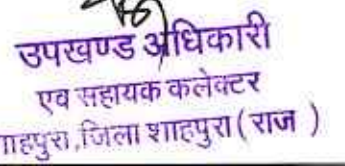 उपखण्ड अधिकारी
एव सहायक कलेक्टर
ाहपुरा,जिला शाहपुरा ( राज )